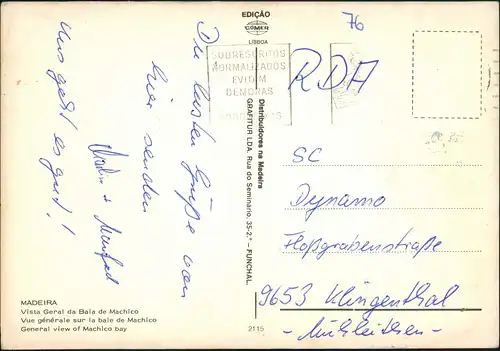 EDIÇÃO
COMER
LISBOA
76
SOBRESCRITOS
NORMALIZADOS
EVITAM
DEMORAS
RDA
Die besten Grüße von
hier senden
Manfred
Uns geht es gut!
Distribuidores na Madeira
GRAFITUR LDA. Rua do Seminário, 35-2.º - FUNCHAL.
SC
Dynamo
Floßgrabenstraße
9653 Klingenthal
- Mühlleithen -
MADEIRA
Vista Geral da Baia de Machico
Vue générale sur la baie de Machico
General view of Machico bay
2115